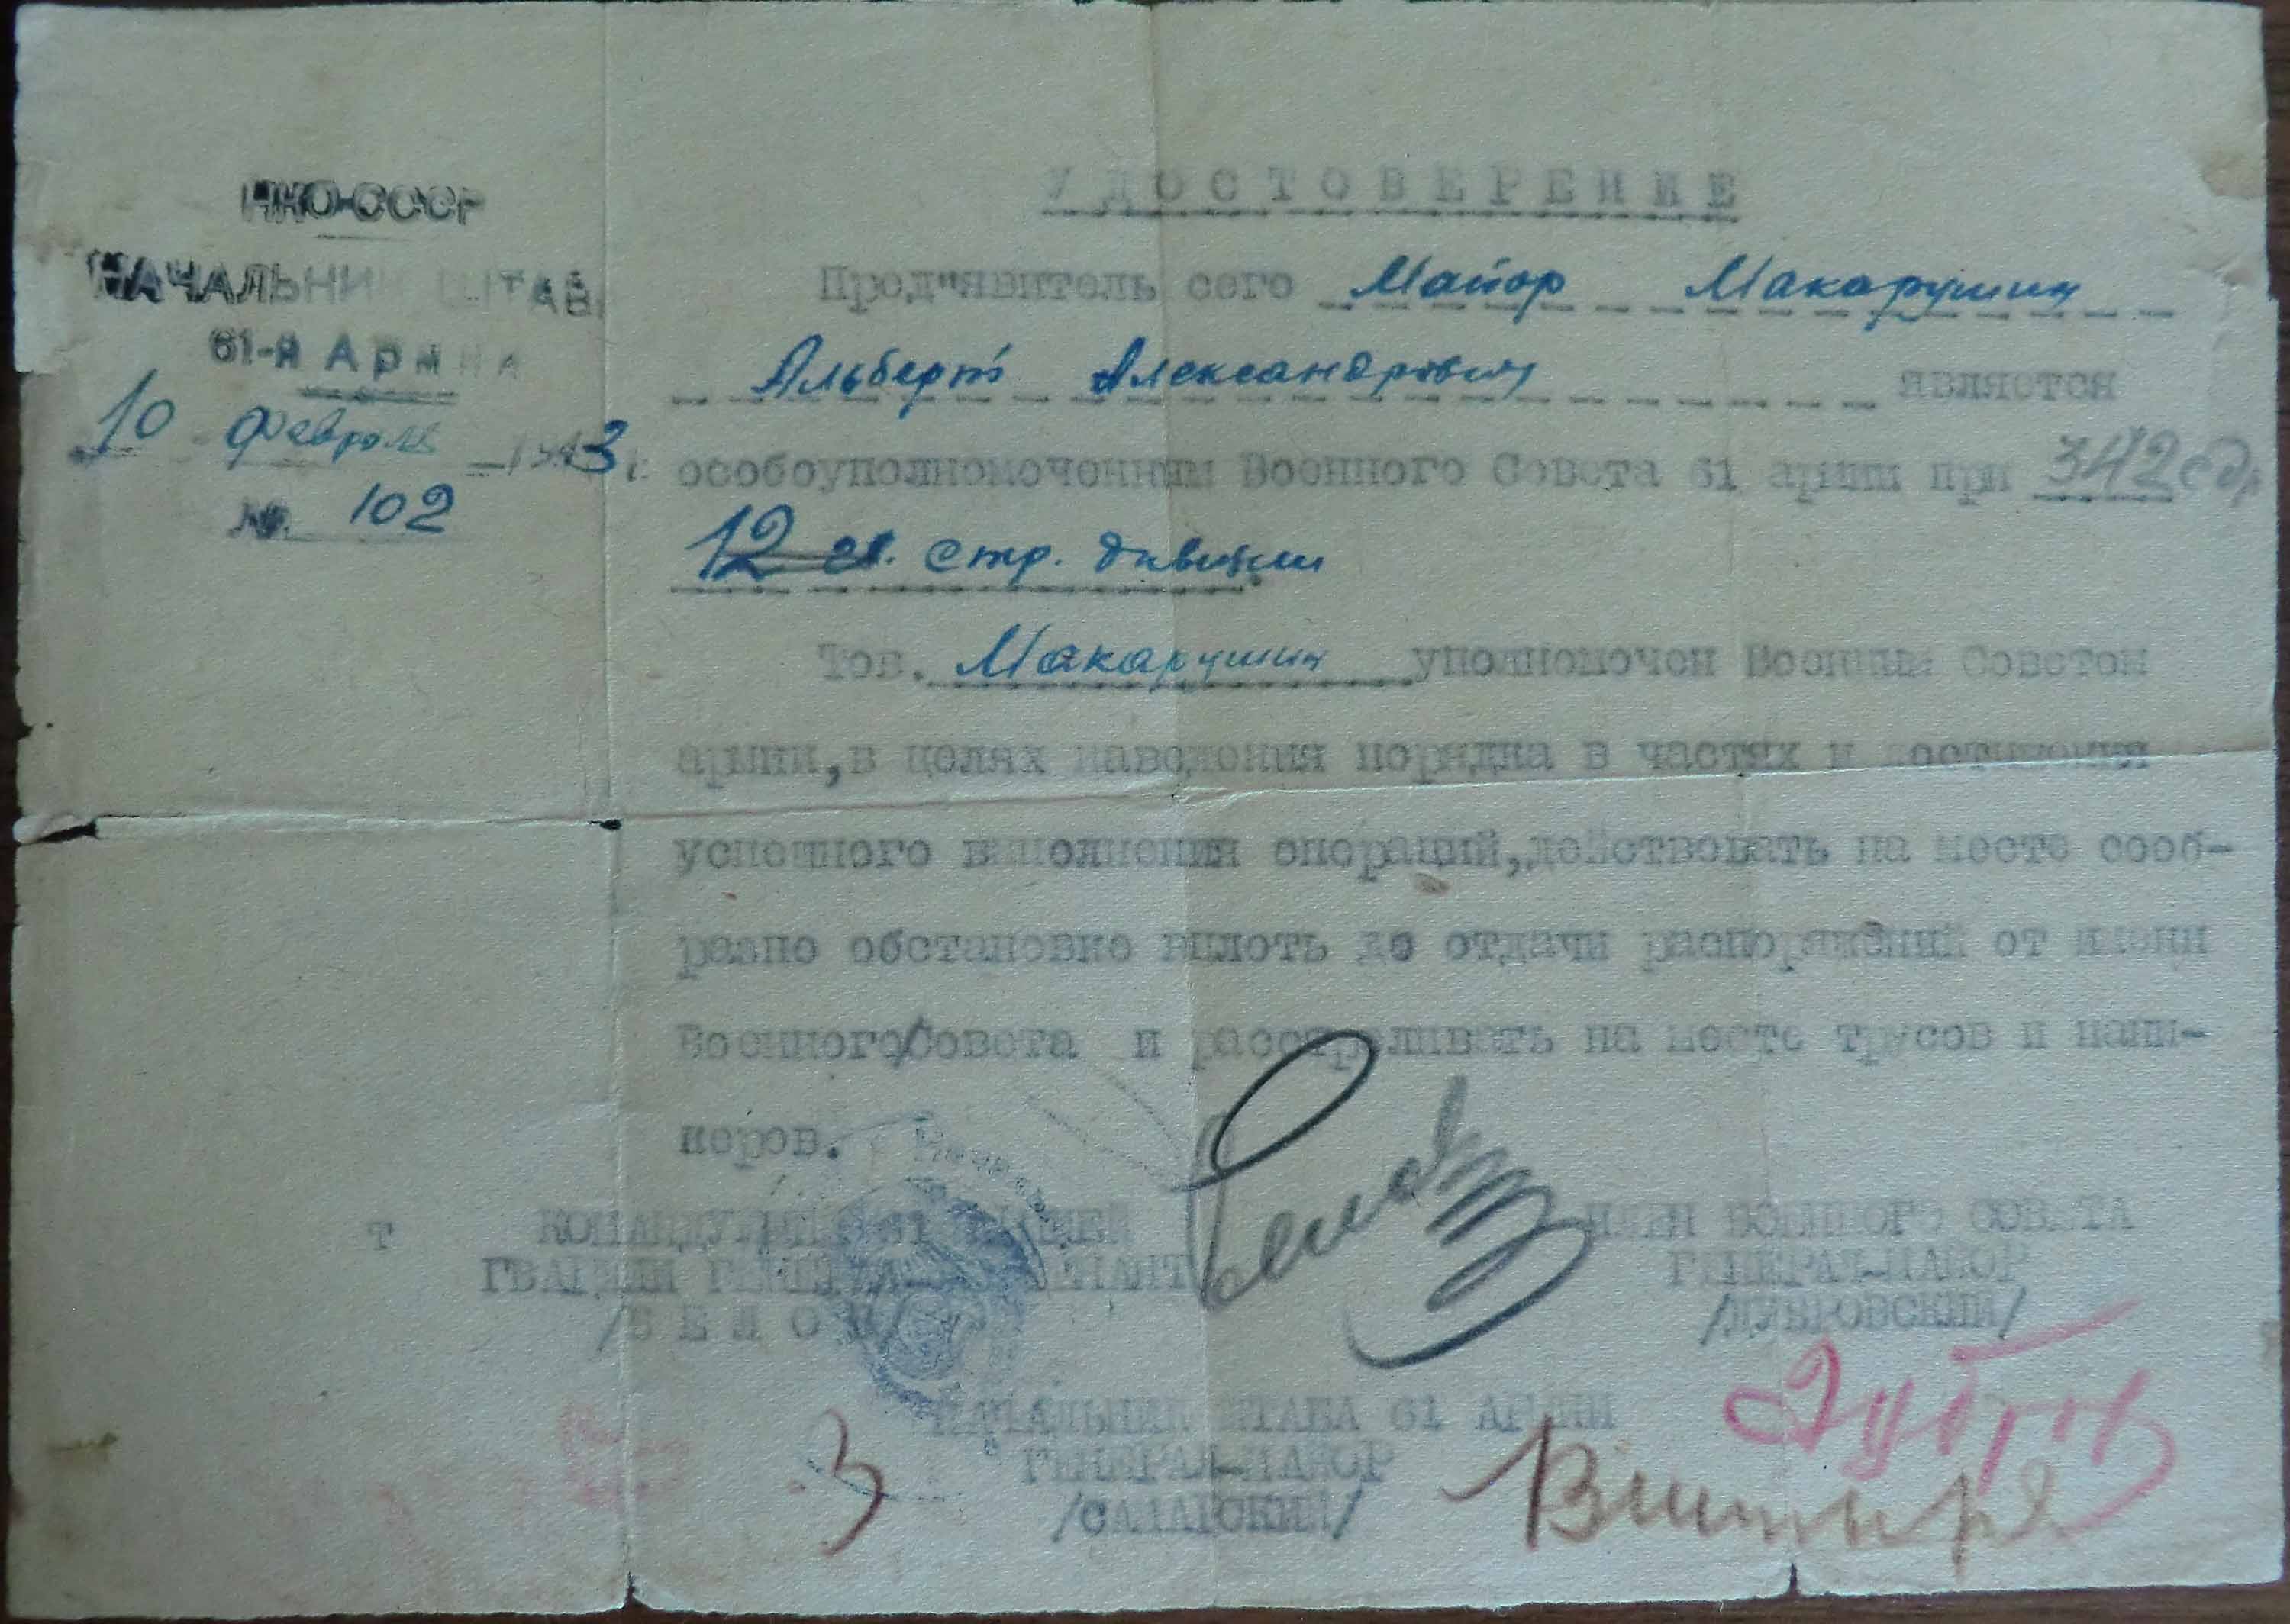 НКО-СССР
НАЧАЛЬНИК ШТАБА
61-я Армия
10 февраля 1943 г.
№ 102
УДОСТОВЕРЕНИЕ
Пред"явитель сего Майор Макарушин
Альберт Александрович является
особоуполномоченным Военного Совета 61 армии при 342 сд
12 гв. стр. дивизии
Тов. Макарушин уполномочен Военным Советом
армии, в целях наведения порядка в частях и достижения
успешного выполнения операций, действовать на месте сооб-
разно обстановке вплоть до отдачи распоряжений от имени
Военного/Совета и расстреливать на месте трусов и пани-
керов.
Т КОМАНДУЮЩИЙ 61 АРМИЕЙ
ГВАРДИИ ГЕНЕРАЛ-ЛЕЙТЕНАНТ
/БЕЛОВ/
Белов
ЧЛЕН ВОЕННОГО СОВЕТА
ГЕНЕРАЛ-МАЙОР
/ДУБРОВСКИЙ/
Дубров
НАЧАЛЬНИК ШТАБА 61 АРМИИ
ГЕНЕРАЛ-МАЙОР
/САЛАРСКИЙ/